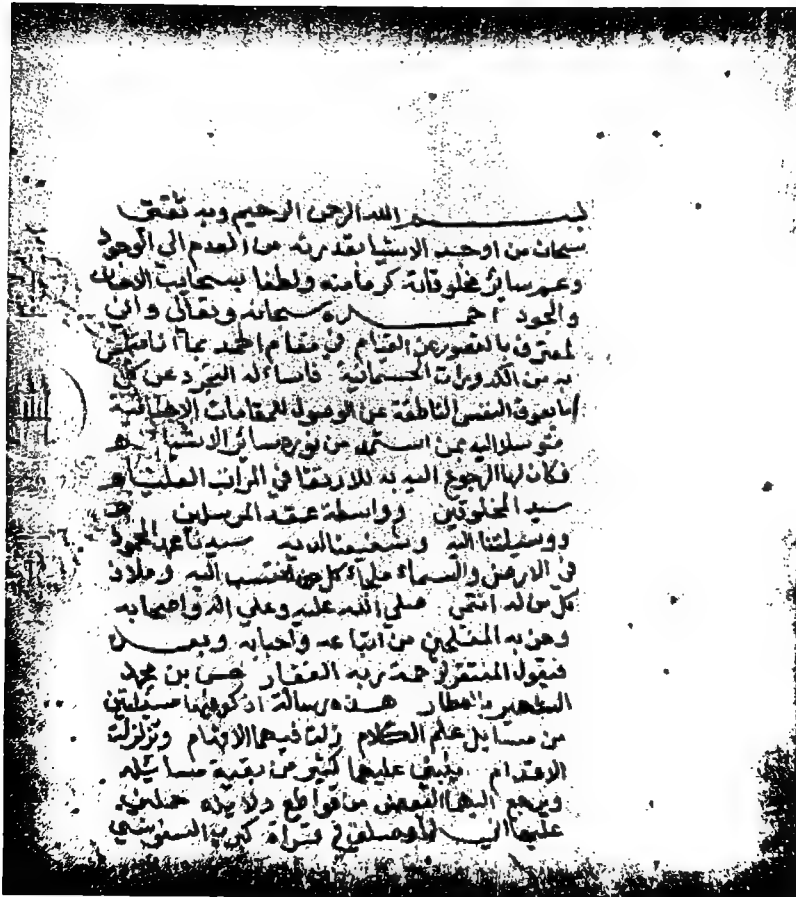 بسم الله الرحمن الرحيم وبه ثقتي
سبحان من اوجد الاشيا بقدرته من العدم الى الوجود
وعم سائر مخلوقاته كرما منه ولطفا بسحايب الاحسان
والجود احمده سبحانه وتعالى واني
لمعترف بالقصور عن القيام في مقام الحمد بما انا متلبس
به من الكدورات الجسمانية فاساله التجرد عن كل
ما يعوق النفس الناطقة عن الوصول للمقامات
متوسلا اليه بمن استمد من نوره سائر الاشيا
فكان لها الرجوع اليه به للارتقا في المراتب العليا
سيد المخلوقين وواسطة عقد المرسلين
ووسيلتنا اليه وشفيعنا لديه سيدنا محمد المحمود
في الارض والسماء ملجاء كل من انتسب اليه وملاذ
كل من له انتمى صلى الله عليه وعلى اله واصحابه
ومن به المفلحين من اتباعه واحبابه وبعد
فيقول المفتقر لرحمة ربه الغفار حسن بن محمد
الشهير بالعطار هذه رسالة اذكر فيها مسئلتين
من مسايل علم الكلام زلت فيهما الاقدام وتزلزلت
الاقدام ينبني عليها كثير من بقية مسائله
ويرجع اليها البعض من قواطع دلايله حملني
عليها اني لما وصلت في قراة كبرى السنوسي